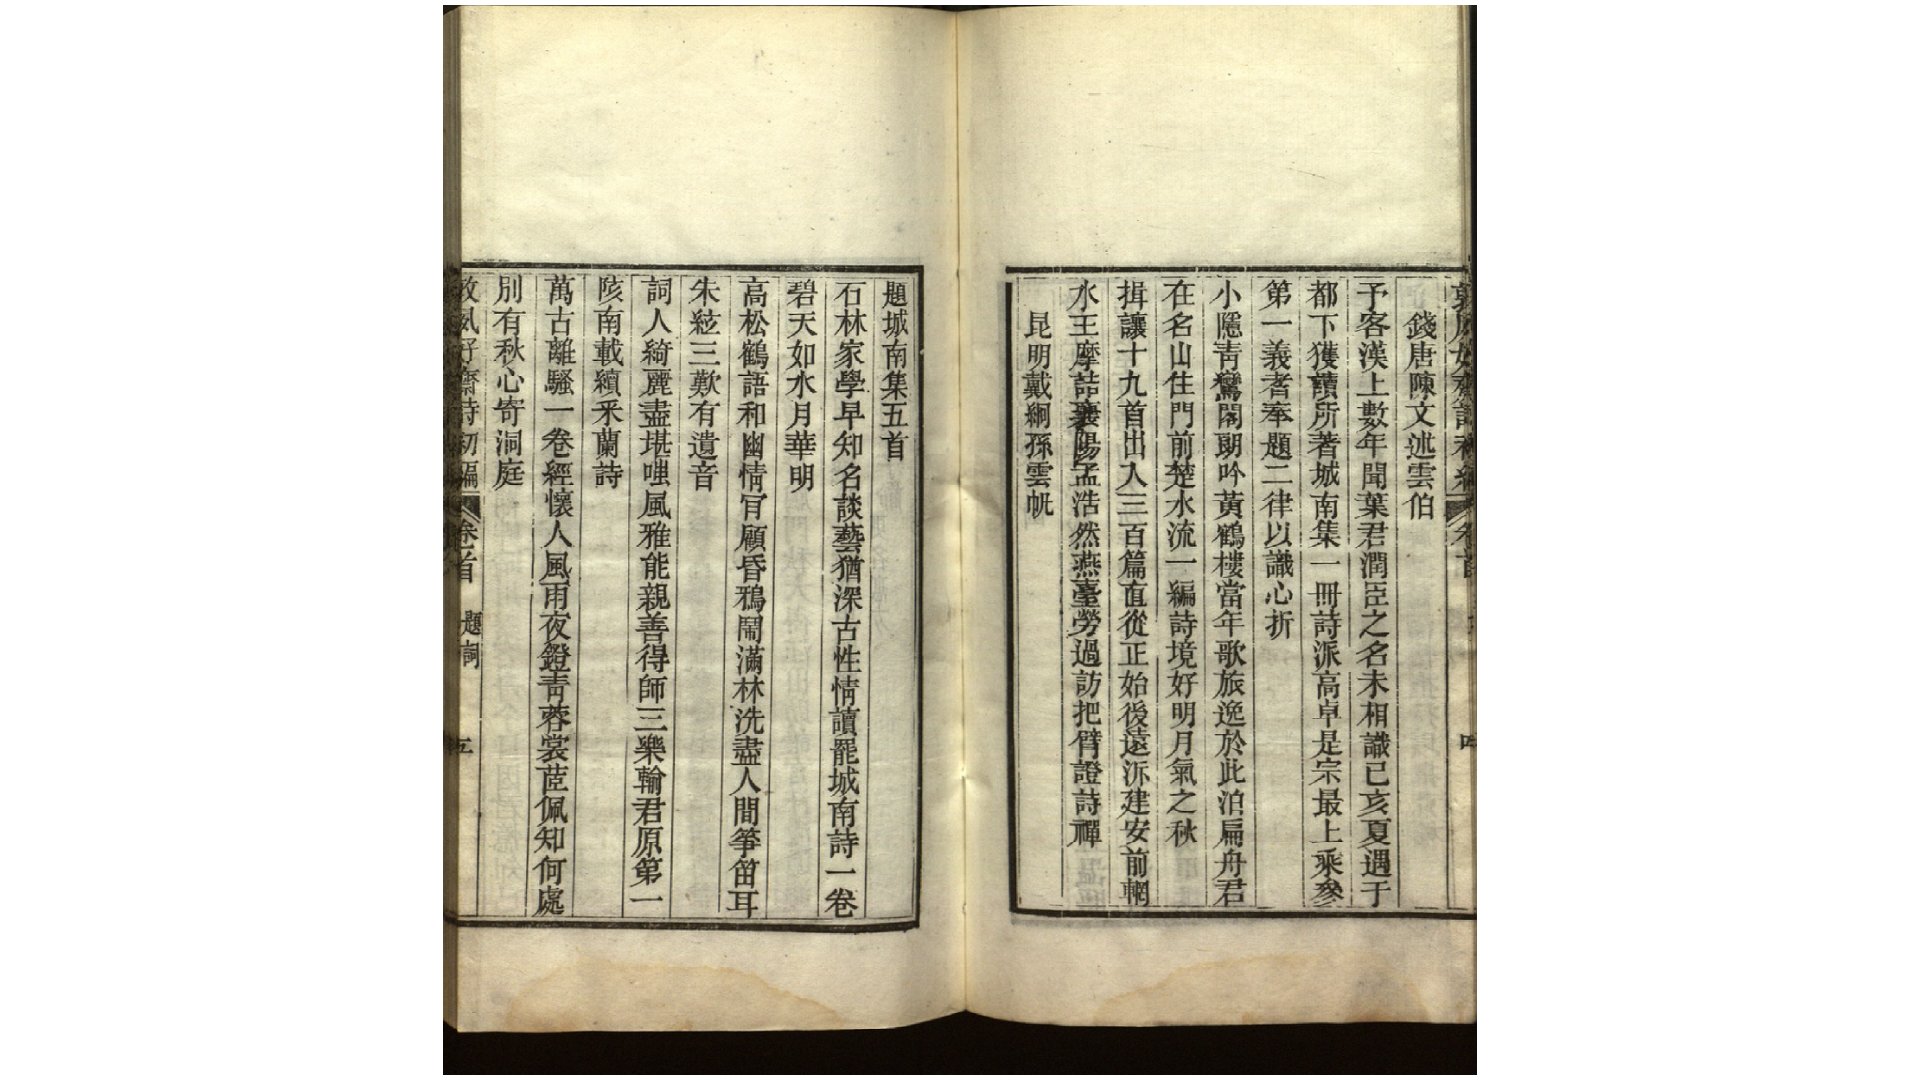 敦夙好齋詩初編 卷首 四
錢唐陳文述雲伯
予客漢上數年聞葉君潤臣之名未相識己亥夏遇于
都下獲讀所著城南集一冊詩派高卓是宗最上乘參
第一義者奉題二律以識心折
小隱靑鸞閣朗吟黃鶴樓當年歌旅逸於此泊扁舟君
在名山住門前楚水流一編詩境好明月氣之秋
揖讓十九首出入三百篇直從正始後遠泝建安前輞
水王摩詰襄陽孟浩然燕臺勞過訪把臂證詩禪
昆明戴絅孫雲帆
題城南集五首
石林家學早知名談藝猶深古性情讀罷城南詩一卷
碧天如水月華明
高松鶴語和幽情肎顧昏鴉鬧滿林洗盡人間筝笛耳
朱絃三歎有遺音
詞人綺麗盡堪嗤風雅能親善得師三樂輸君原第一
陔南載續釆蘭詩
萬古離騷一卷經懷人風雨夜鐙靑蓉裳茝佩知何處
別有秋心寄洞庭
敦夙好齋詩初編 卷首 題詞 五